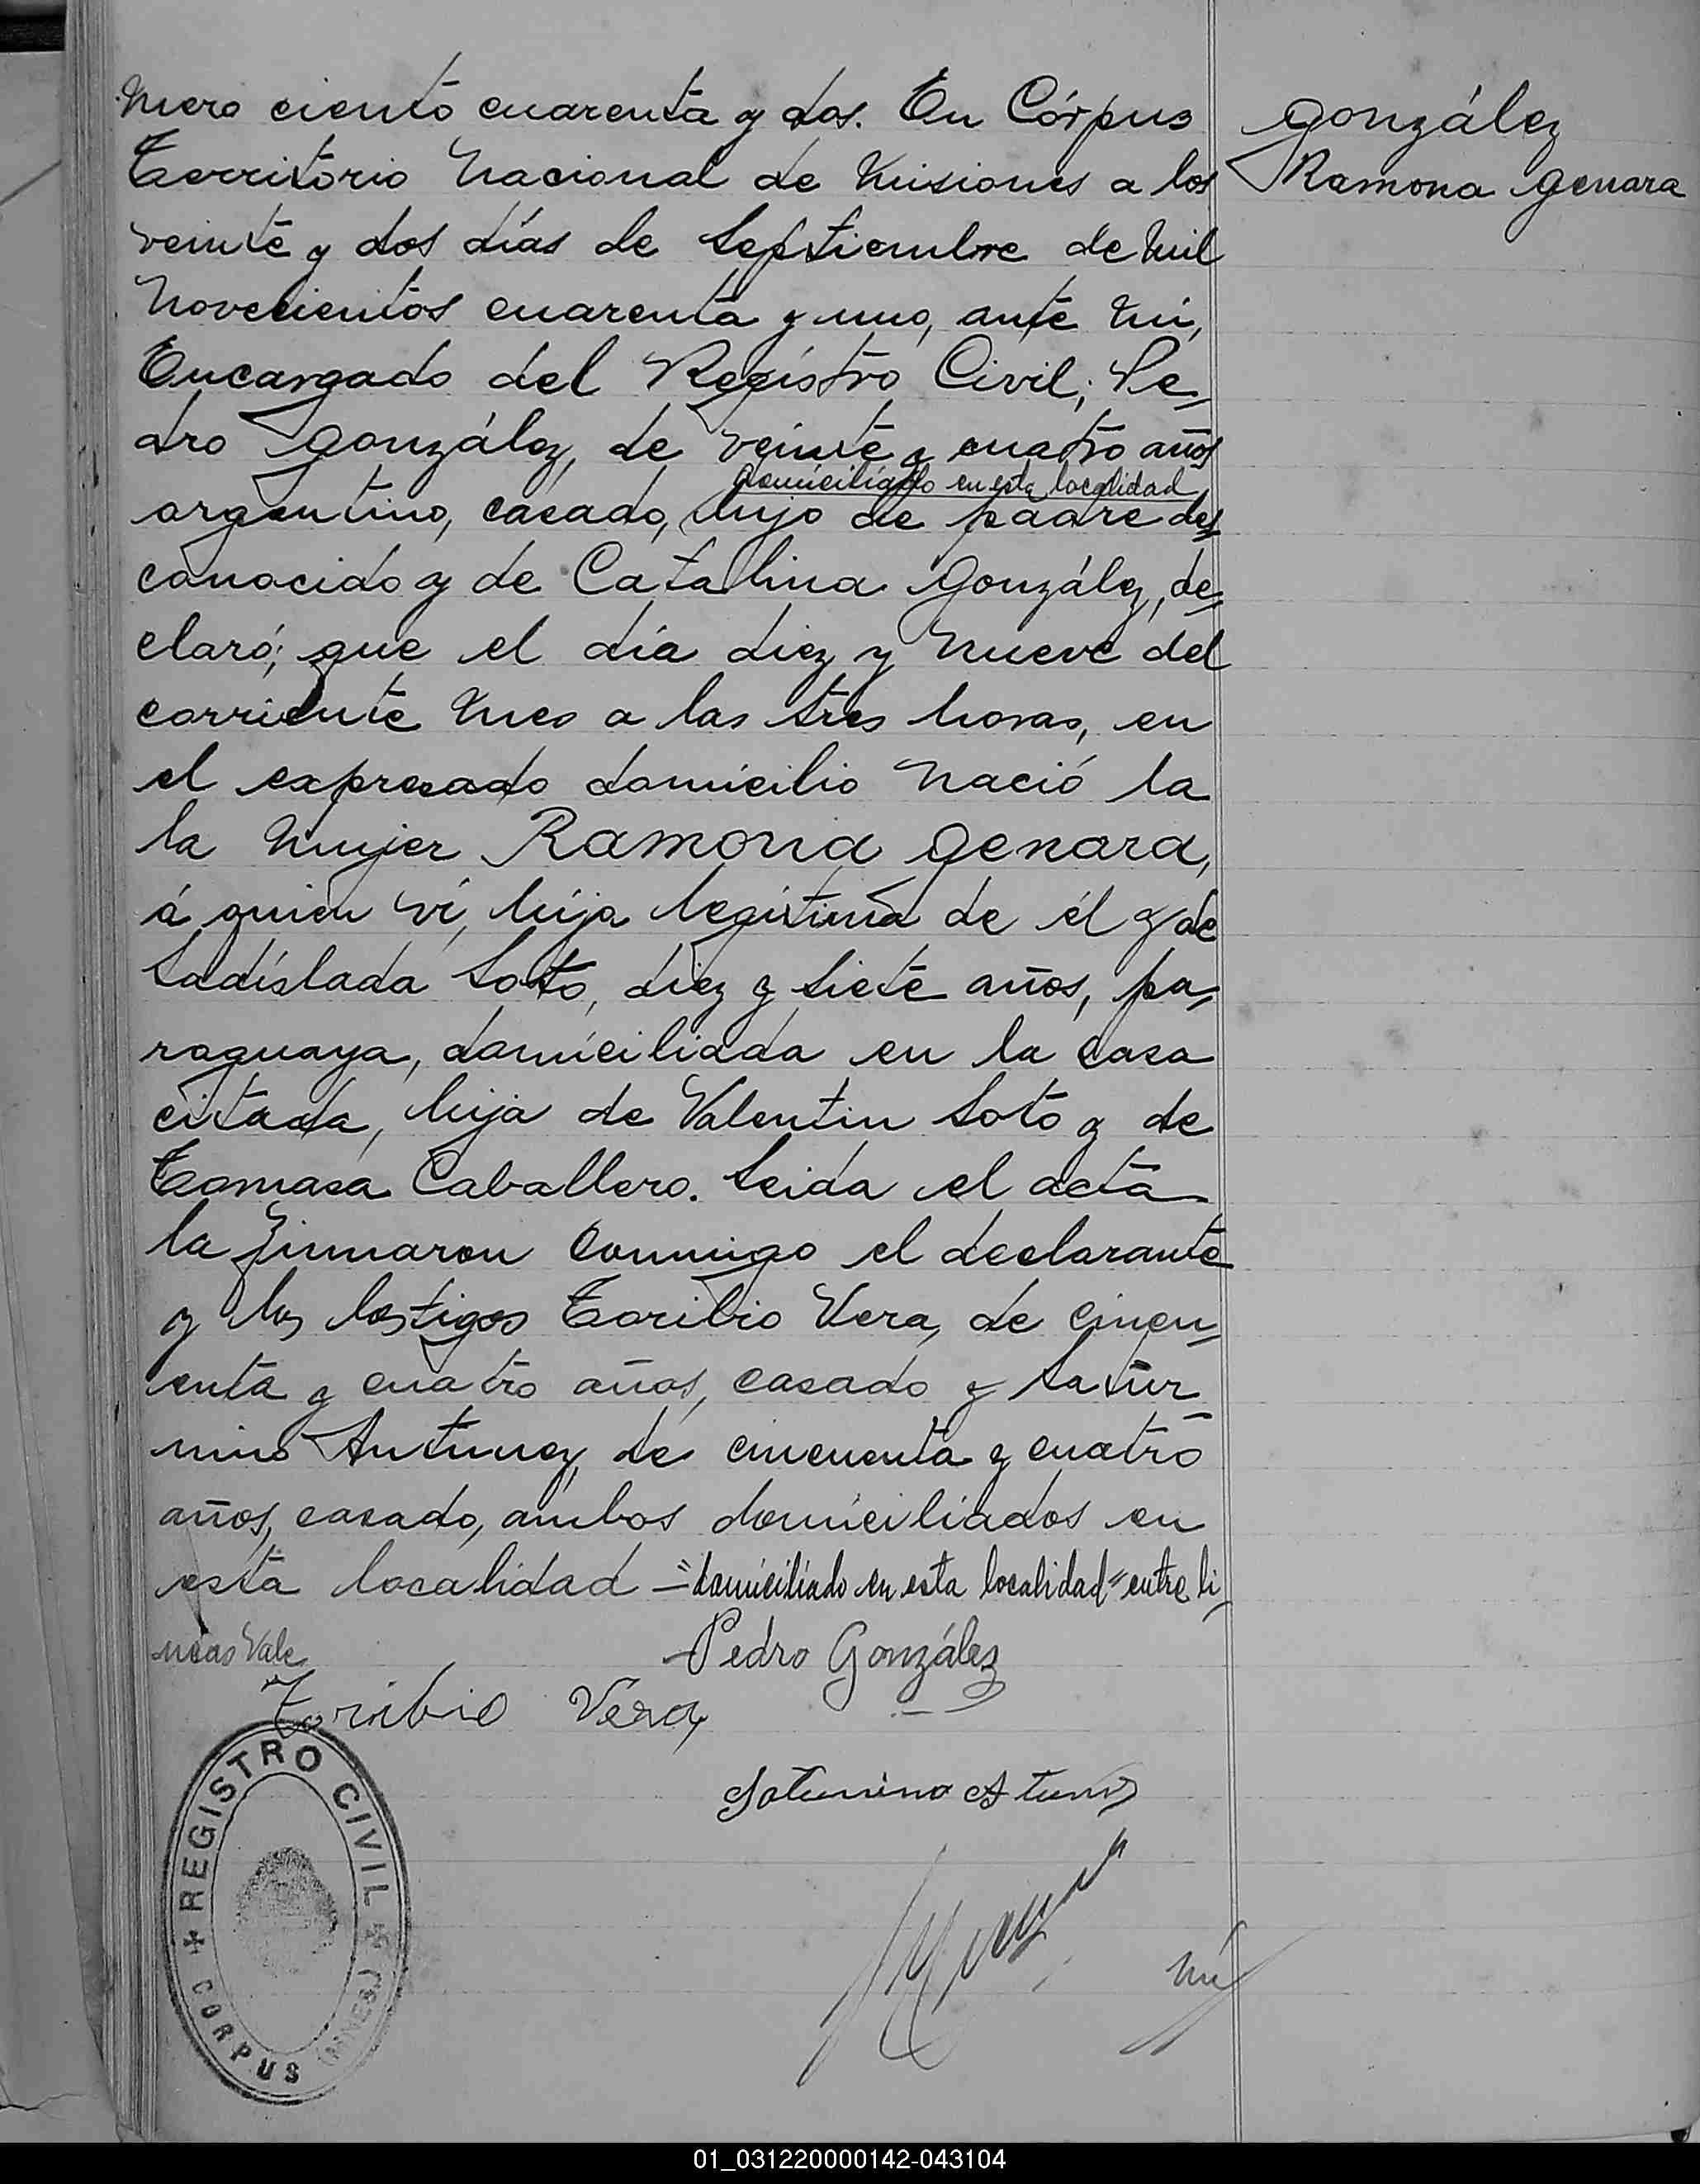 mero ciento cuarenta y dos. En Córpus
Territorio Nacional de Misiones a los
veinte y dos días de Septiembre de mil
novecientos cuarenta y uno, ante mí,
Encargado del Registro Civil; Pe-
dro González, de veinte y cuatro años
domiciliado en esta localidad
argentino, casado, hijo de padre des-
conocido y de Catalina González, de-
claró; que el día diez y nueve del
corriente mes a las tres horas, en
el expresado domicilio nació la
la mujer Ramona Genara,
á quien ví, hija legítima de él y de
Ladíslada Soto, diez y siete años, pa-
raguaya, domiciliada en la casa
citada, hija de Valentin Soto y de
Tomasa Caballero. Leida el acta
la firmaron conmigo el declarante
y los testigos Toribio Vera, de cincu-
enta y cuatro años, casado y Satur-
nino Antunez, de cincuenta y cuatro
años, casado, ambos domiciliados en
esta localidad = "domiciliado en esta localidad" entre li-
neas Vale
Pedro González
Toribio Vera
Saturnino
González
Ramona Genara
REGISTRO CIVIL
CORPUS (MNES.)
01_031220000142-043104